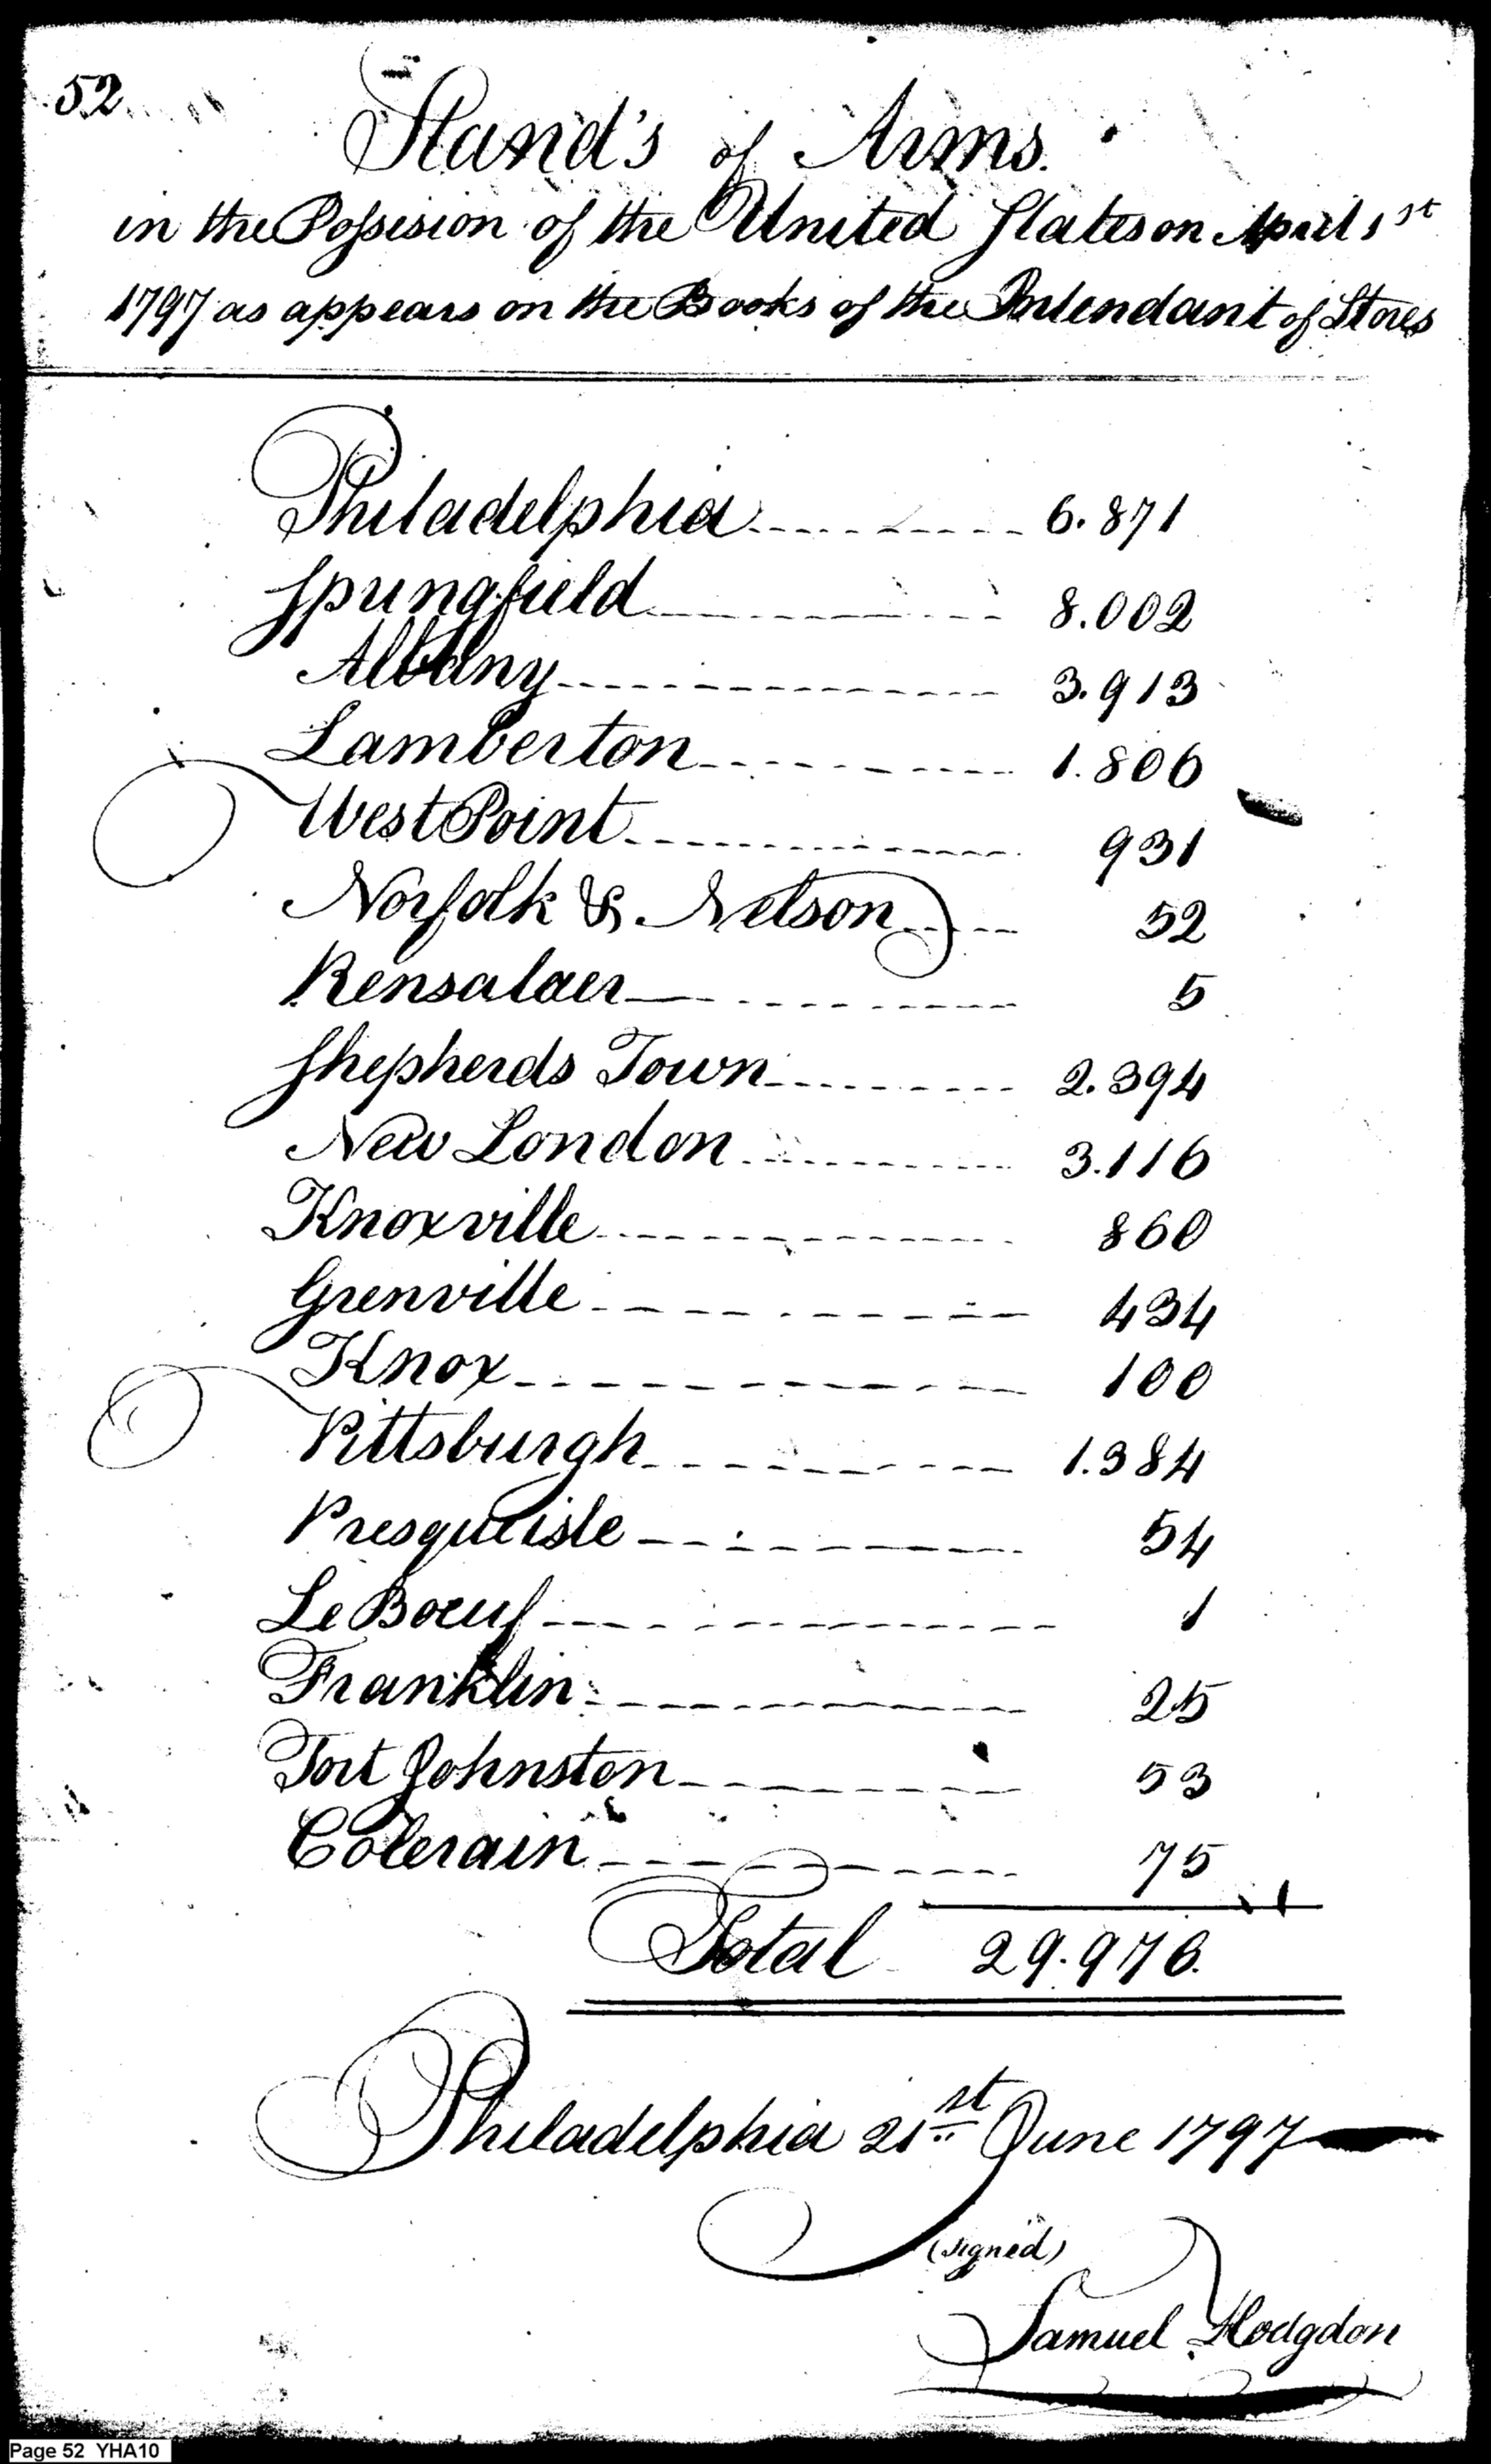 52
Stand's of Arms.
in the Poſsesion of the United States on April 1st
1797 as appears on the Books of the Intendant of Stores
Philadelphia 6.871
Springfield 8.002
Albany 3.913
Lamberton 1.806
West Point 931
Norfolk & Nelson 52
Rensalaer 5
Shepherds Town 2.394
New London 3.116
Knoxville 860
Grenville 434
Knox 100
Pittsburgh 1.384
Presqueisle 54
Le Boeuf 1
Franklin 25
Fort Johnston 53
Colerain 75
Total 29.976.
Philadelphia 21st June 1797
(signed)
Samuel Hodgdon
Page 52 YHA10